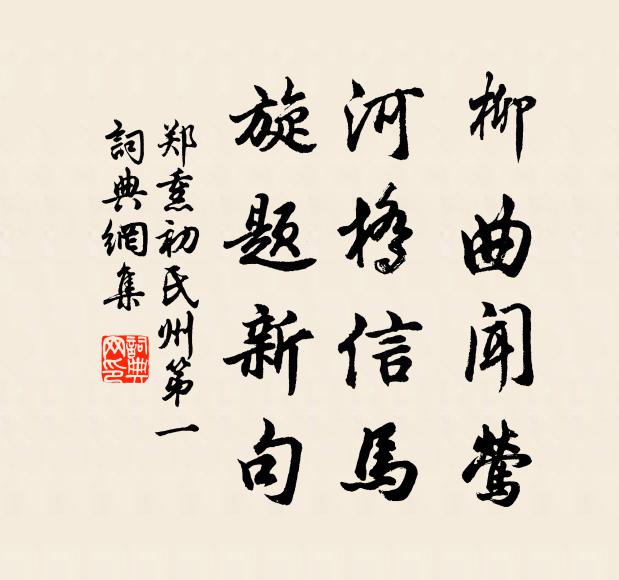 柳曲闻莺
河桥信马
旋题新句
郑熏初氏州第一
詞典網集
詞典
网印